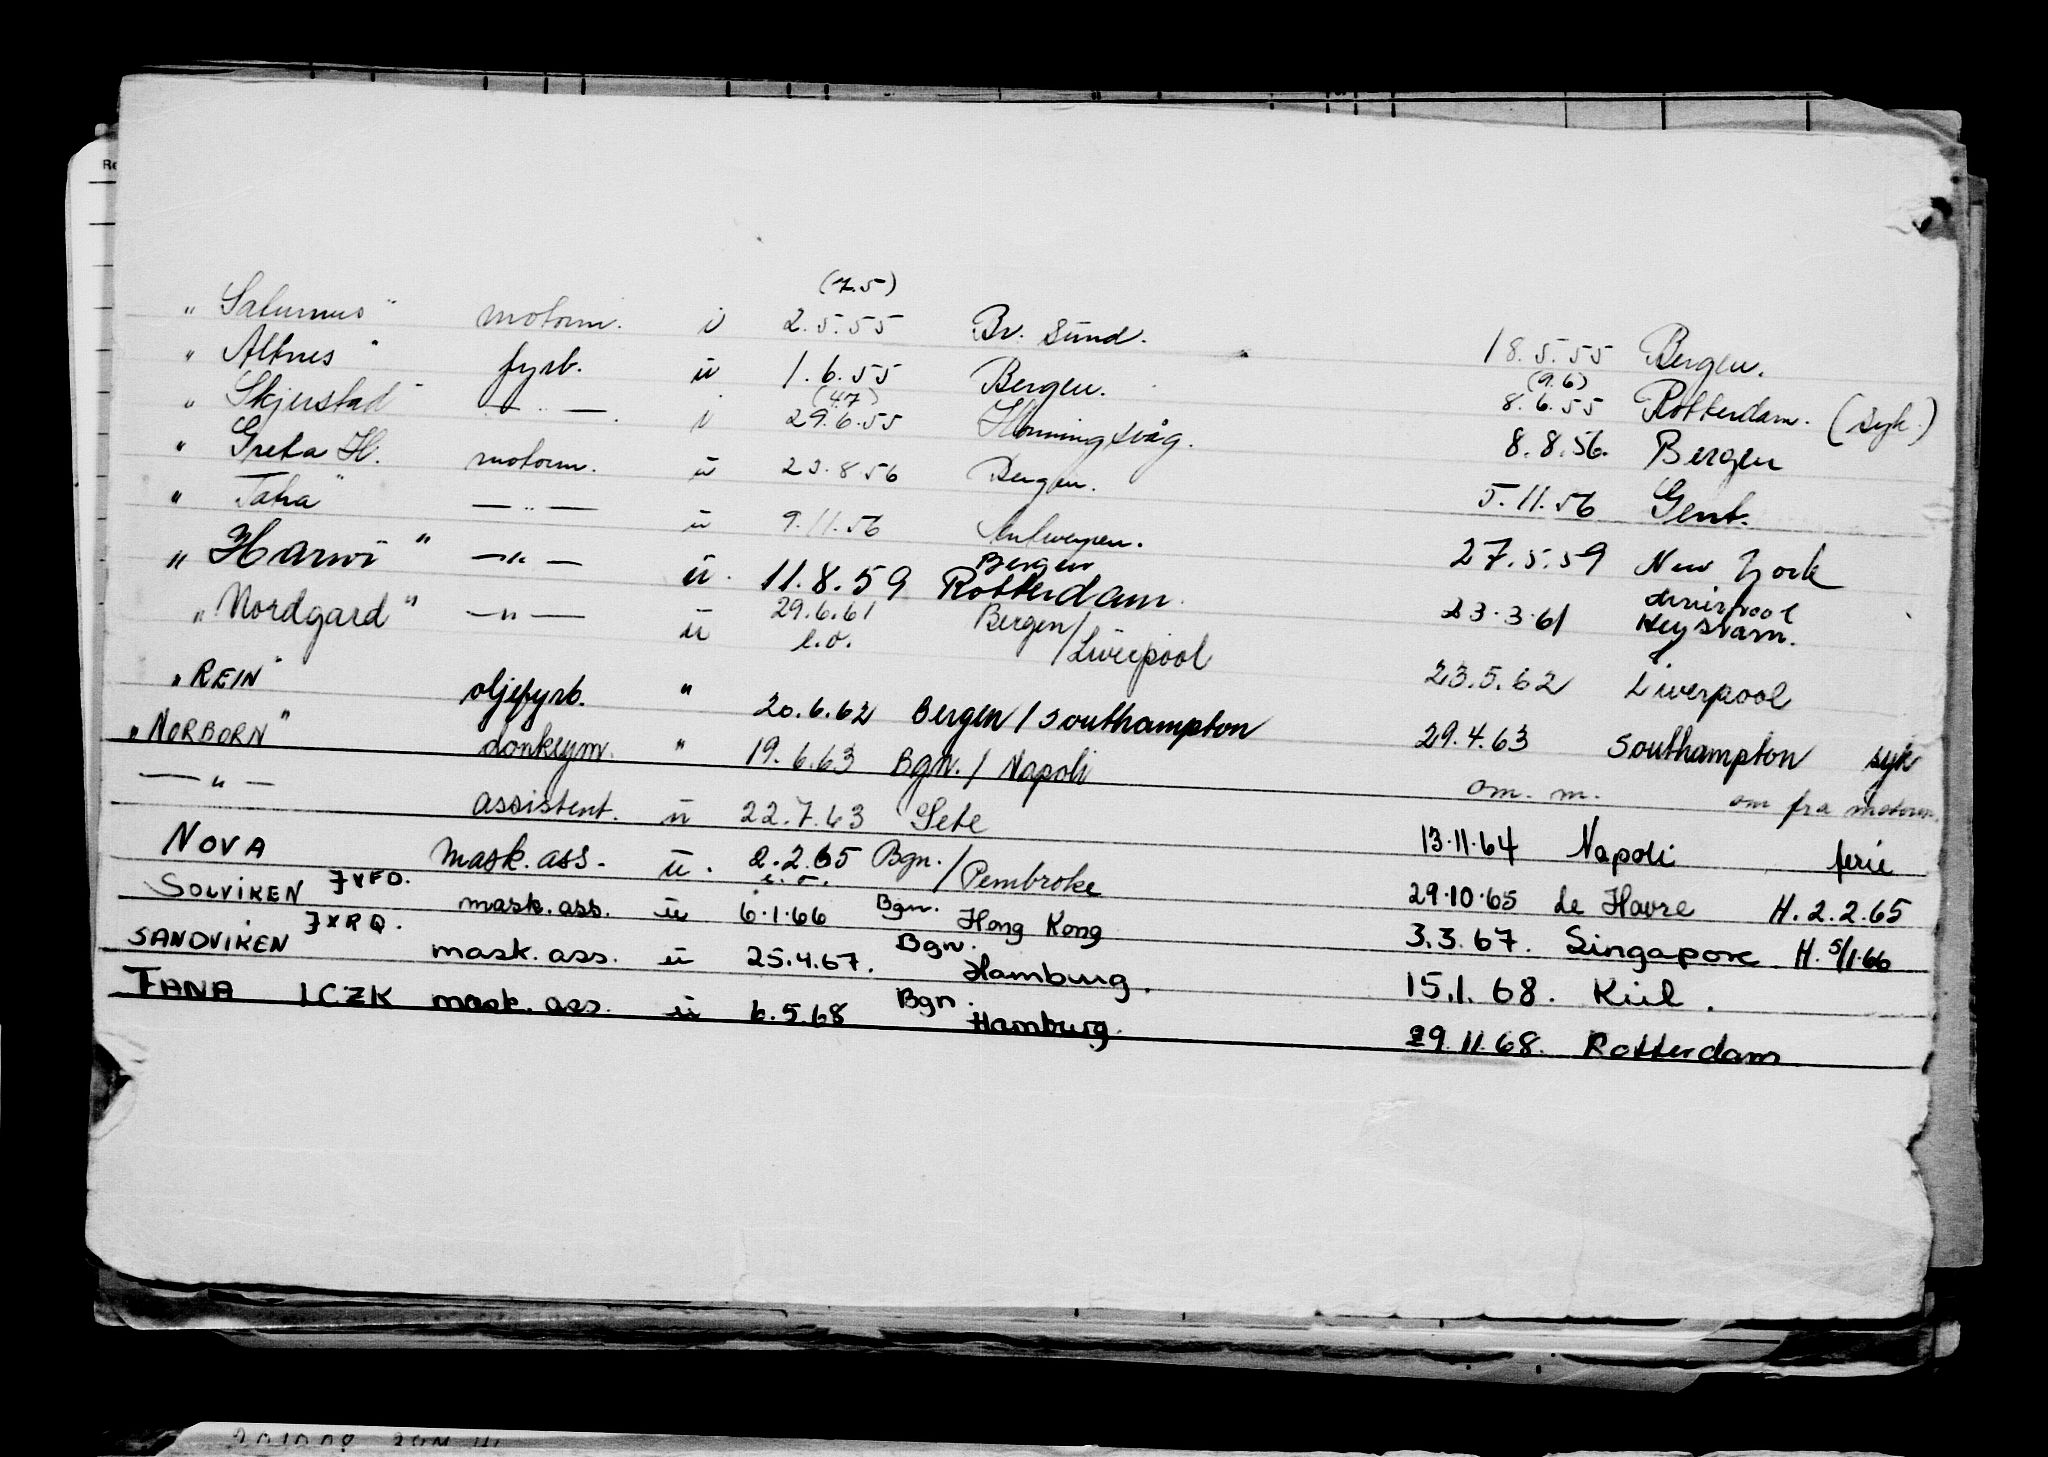 (7.5)
„ Saturnus " motorm. i 2.5.55 Br. sund. 18.5.55 Bergen.
„ Altnes " fyrb. u 1.6.55 Bergen. (9.6) 8.6.55 Rotterdam. (syk.)
„ Skjerstad " — " — . i (4.7) 29.6.55 Honningsvåg. 8.8.56. Bergen
„ Greta H. motorm. u 23.8.56 Bergen. 5.11.56 Gent.
„ Taha " — " — u 9.11.56 Antwerpen. 27.5.59 New York
„ Harwi " — " — u. 11.8.59 Bergen Rotterdam. 23.3.61 Liverpool Heysham.
„ Nordgard " — " — u 29.6.61 e.o. Bergen / Liverpool 23.5.62 Liverpool
„ REIN " oljefyrb. " 20.6.62 Bergen / Southampton 29.4.63 Southampton syk
„ NORBORN " donkeym. " 19.6.63 Bgn. / Napoli om. m. om fra motorm.
— " — assistent. u 22.7.63 Sete 13.11.64 Napoli ferie
NOVA mask. ass. u. 2.2.65 e.o. Bgn. / Pembroke 29.10.65 Le Havre H. 2.2.65
SOLVIKEN JXFD. mask. ass. u 6.1.66 Bgn. Hong Kong 3.3.67. Singapore H. 5/1.66
SANDVIKEN JXRQ. mask. ass. u 25.4.67. Bgn. Hamburg. 15.1.68. Kiel.
FANA LCZK mask. ass. u 6.5.68 Bgn. Hamburg. 29.11.68. Rotterdam